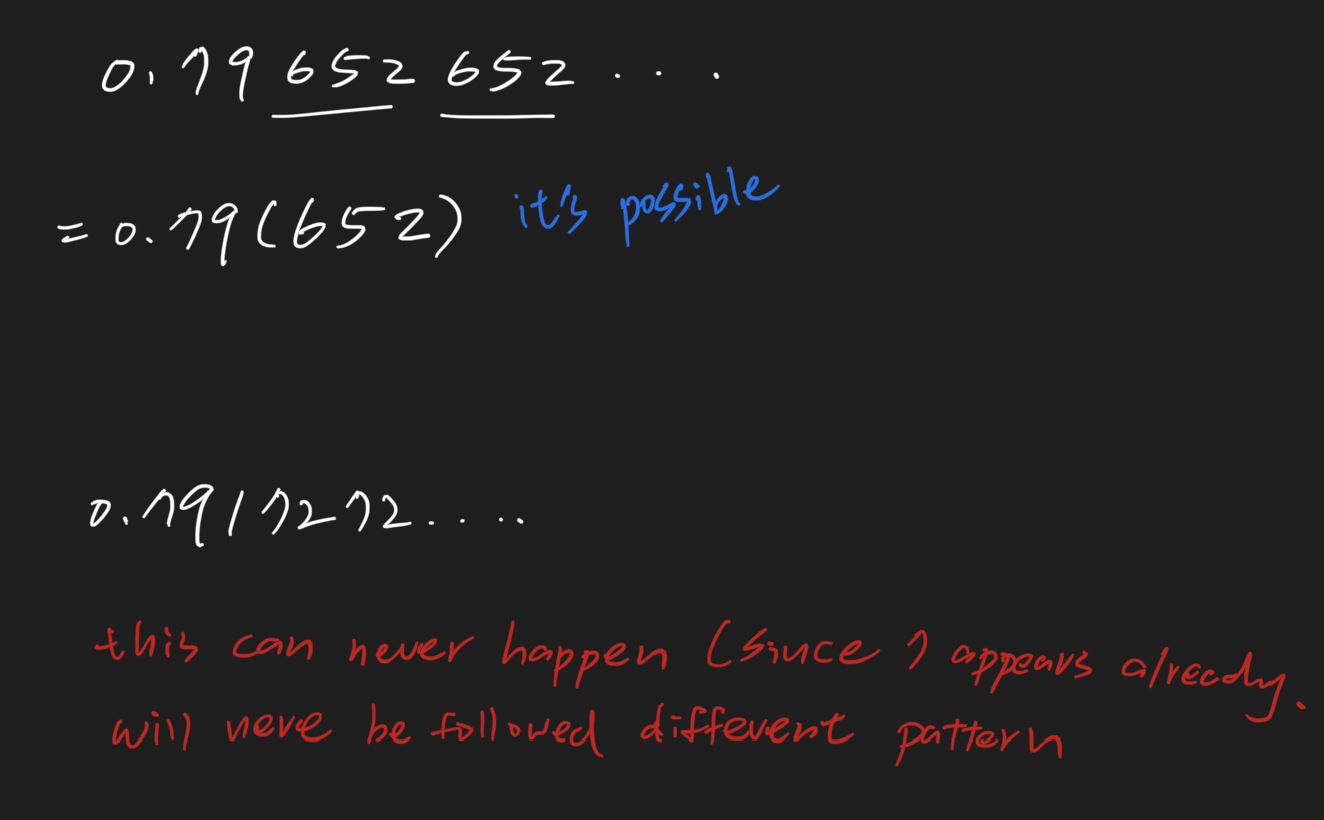 0.79 652 652 . . .
= 0.79(652) it's possible
0.7917272....
this can never happen (since 7 appears already.
will neve be followed different pattern